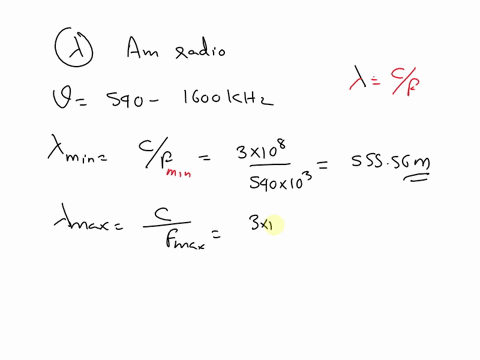 λ Am radio
ν = 590 - 1600 KHz
λ = C/f
λmin = C/fmin = 3×10⁸ / 590×10³ = 555.56 m
λmax = C / fmax = 3×1